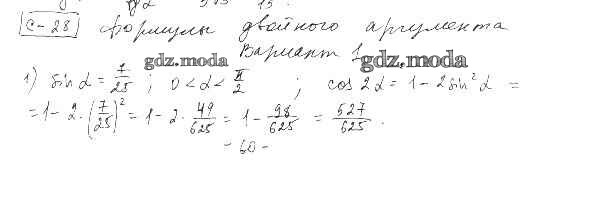 С-28 Формулы двойного аргумента
Вариант 1
gdz.moda gdz.moda
1) sin α = 7/25 ; 0 < α < π/2 ; cos 2α = 1 - 2 sin² α =
= 1 - 2 · (7/25)² = 1 - 2 · 49/625 = 1 - 98/625 = 527/625 .
- 60 -